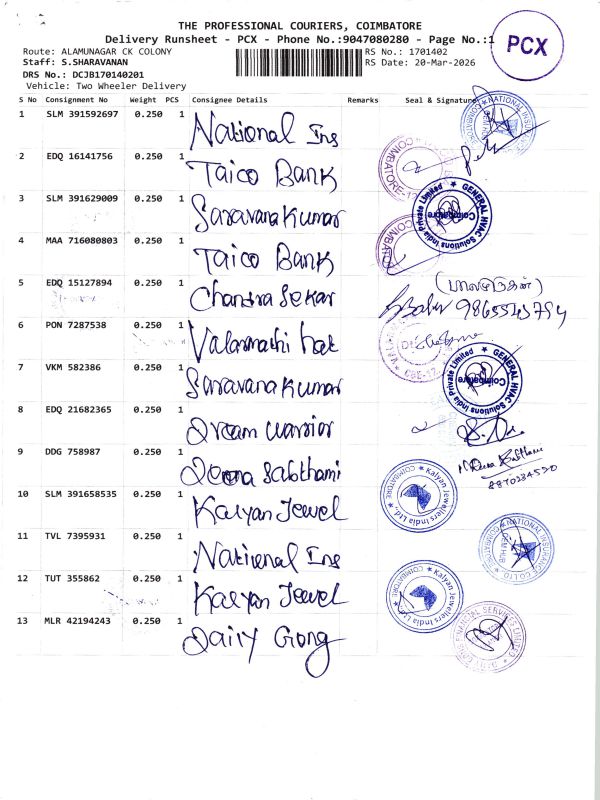 THE PROFESSIONAL COURIERS, COIMBATORE
Delivery Runsheet - PCX - Phone No.:9047080280 - Page No.:1
PCX
Route: ALAMUNAGAR CK COLONY
RS No.: 1701402
Staff: S.SHARAVANAN
RS Date: 20-Mar-2026
DRS No.: DCJB170140201
Vehicle: Two Wheeler Delivery
S No Consignment No Weight PCS Consignee Details Remarks Seal & Signature
1 SLM 391592697 0.250 1 National Ins
2 EDQ 16141756 0.250 1 Taico Bank
COIMBATORE
3 SLM 391629009 0.250 1 Saravana Kumar
GENERAL HVAC Solutions India Private Limited
Coimbatore
4 MAA 716080803 0.250 1 Taico Bank
COIMBATORE
5 EDQ 15127894 0.250 1 Chandra Sekar
6 PON 7287538 0.250 1 Valarmathi
7 VKM 582386 0.250 1 Saravana Kumar
GENERAL HVAC Solutions India Private Limited
Coimbatore
8 EDQ 21682365 0.250 1 Dream warrior
9 DDG 758987 0.250 1
8870234590
10 SLM 391658535 0.250 1 Kalyan Jewel
Kalyan Jewellers India Ltd.
COIMBATORE
11 TVL 7395931 0.250 1 National Ins
NATIONAL INSURANCE CO.LTD
12 TUT 355862 0.250 1 Kalyan Jewel
Kalyan Jewellers India Ltd.
COIMBATORE
13 MLR 42194243 0.250 1